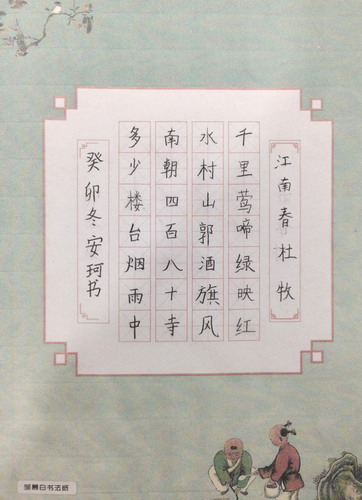 江南春 杜牧
千里莺啼绿映红
水村山郭酒旗风
南朝四百八十寺
多少楼台烟雨中
癸卯冬安珂书
邹慕白书法纸